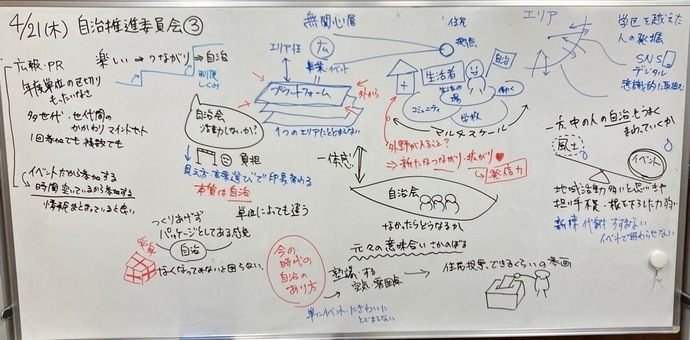 4/21(木) 自治推進委員会③
無関心層
住民
拠点
エリア
学区を越えた
人の発掘
SNS
デジタル
意識的に取組む
広報・PR
楽しい→つながり→自治
年度単位の区切り
もったいなさ
多世代・世代間の
かかわり マインドセット
1回参加でも 複数でも
イベントだから参加する
時間空いているから参加する
エリア性
広
事業・イベント
プラットフォーム
外から
1つのエリアにとどまらない
自治会
活動しないか?
負担
見え方・言葉選びで印象変わる
本質は自治
一体感
生活者
生活の場
自治
働く
コミュニティ
学校
マルチスケール
外野が入ること?
⇒新たなつながり・拡がり
発信力
自治会
なかったらどうなるか
元々の意味合い さかのぼる
一方、中の人の自治もうまく
まわっていくか
風土
イベント
地域活動
担い手不足・根を下ろした力弱い
新陳代謝 すすまない
イベントで終わらせない
つくりあげず
パッケージとしてある感覚
単位によっても違う
自治
なくなってみないと困らない
今の
時代の
自治の
あり方
→整備する
単にイベント・にぎわいに
とどまらない
→住民投票、できるくらいの計画